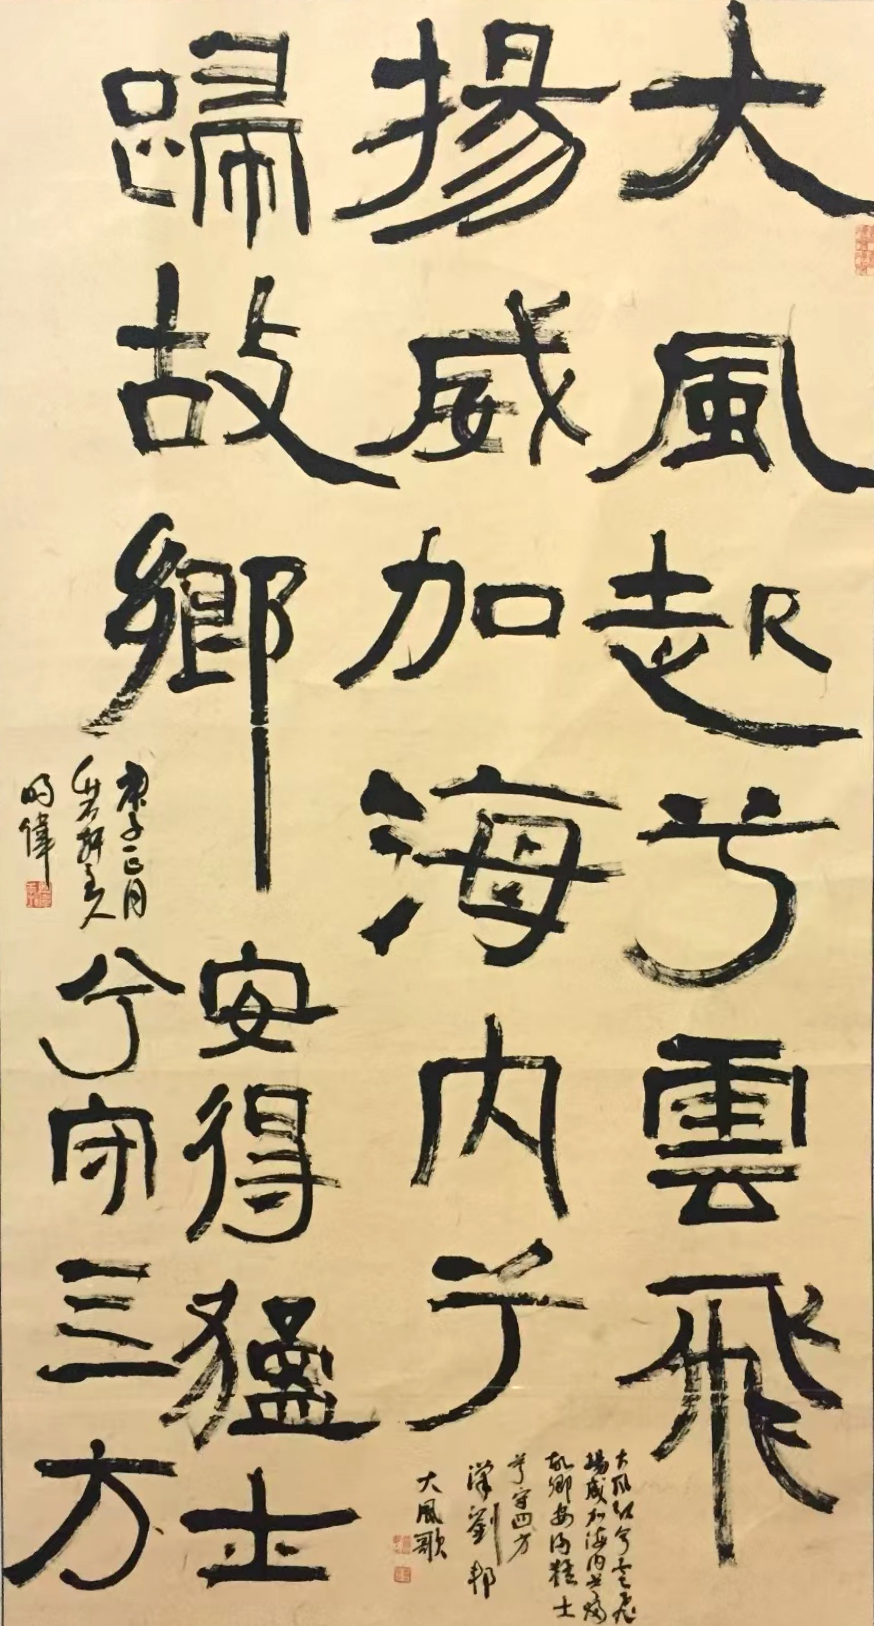 大風起兮雲飛
揚威加海内兮
歸故鄉
安得猛士
兮守三方
大風起兮雲飛
揚威加海内兮歸
故鄉安得猛士
兮守四方
漢劉邦
大風歌
庚子正月
軒主人
明偉